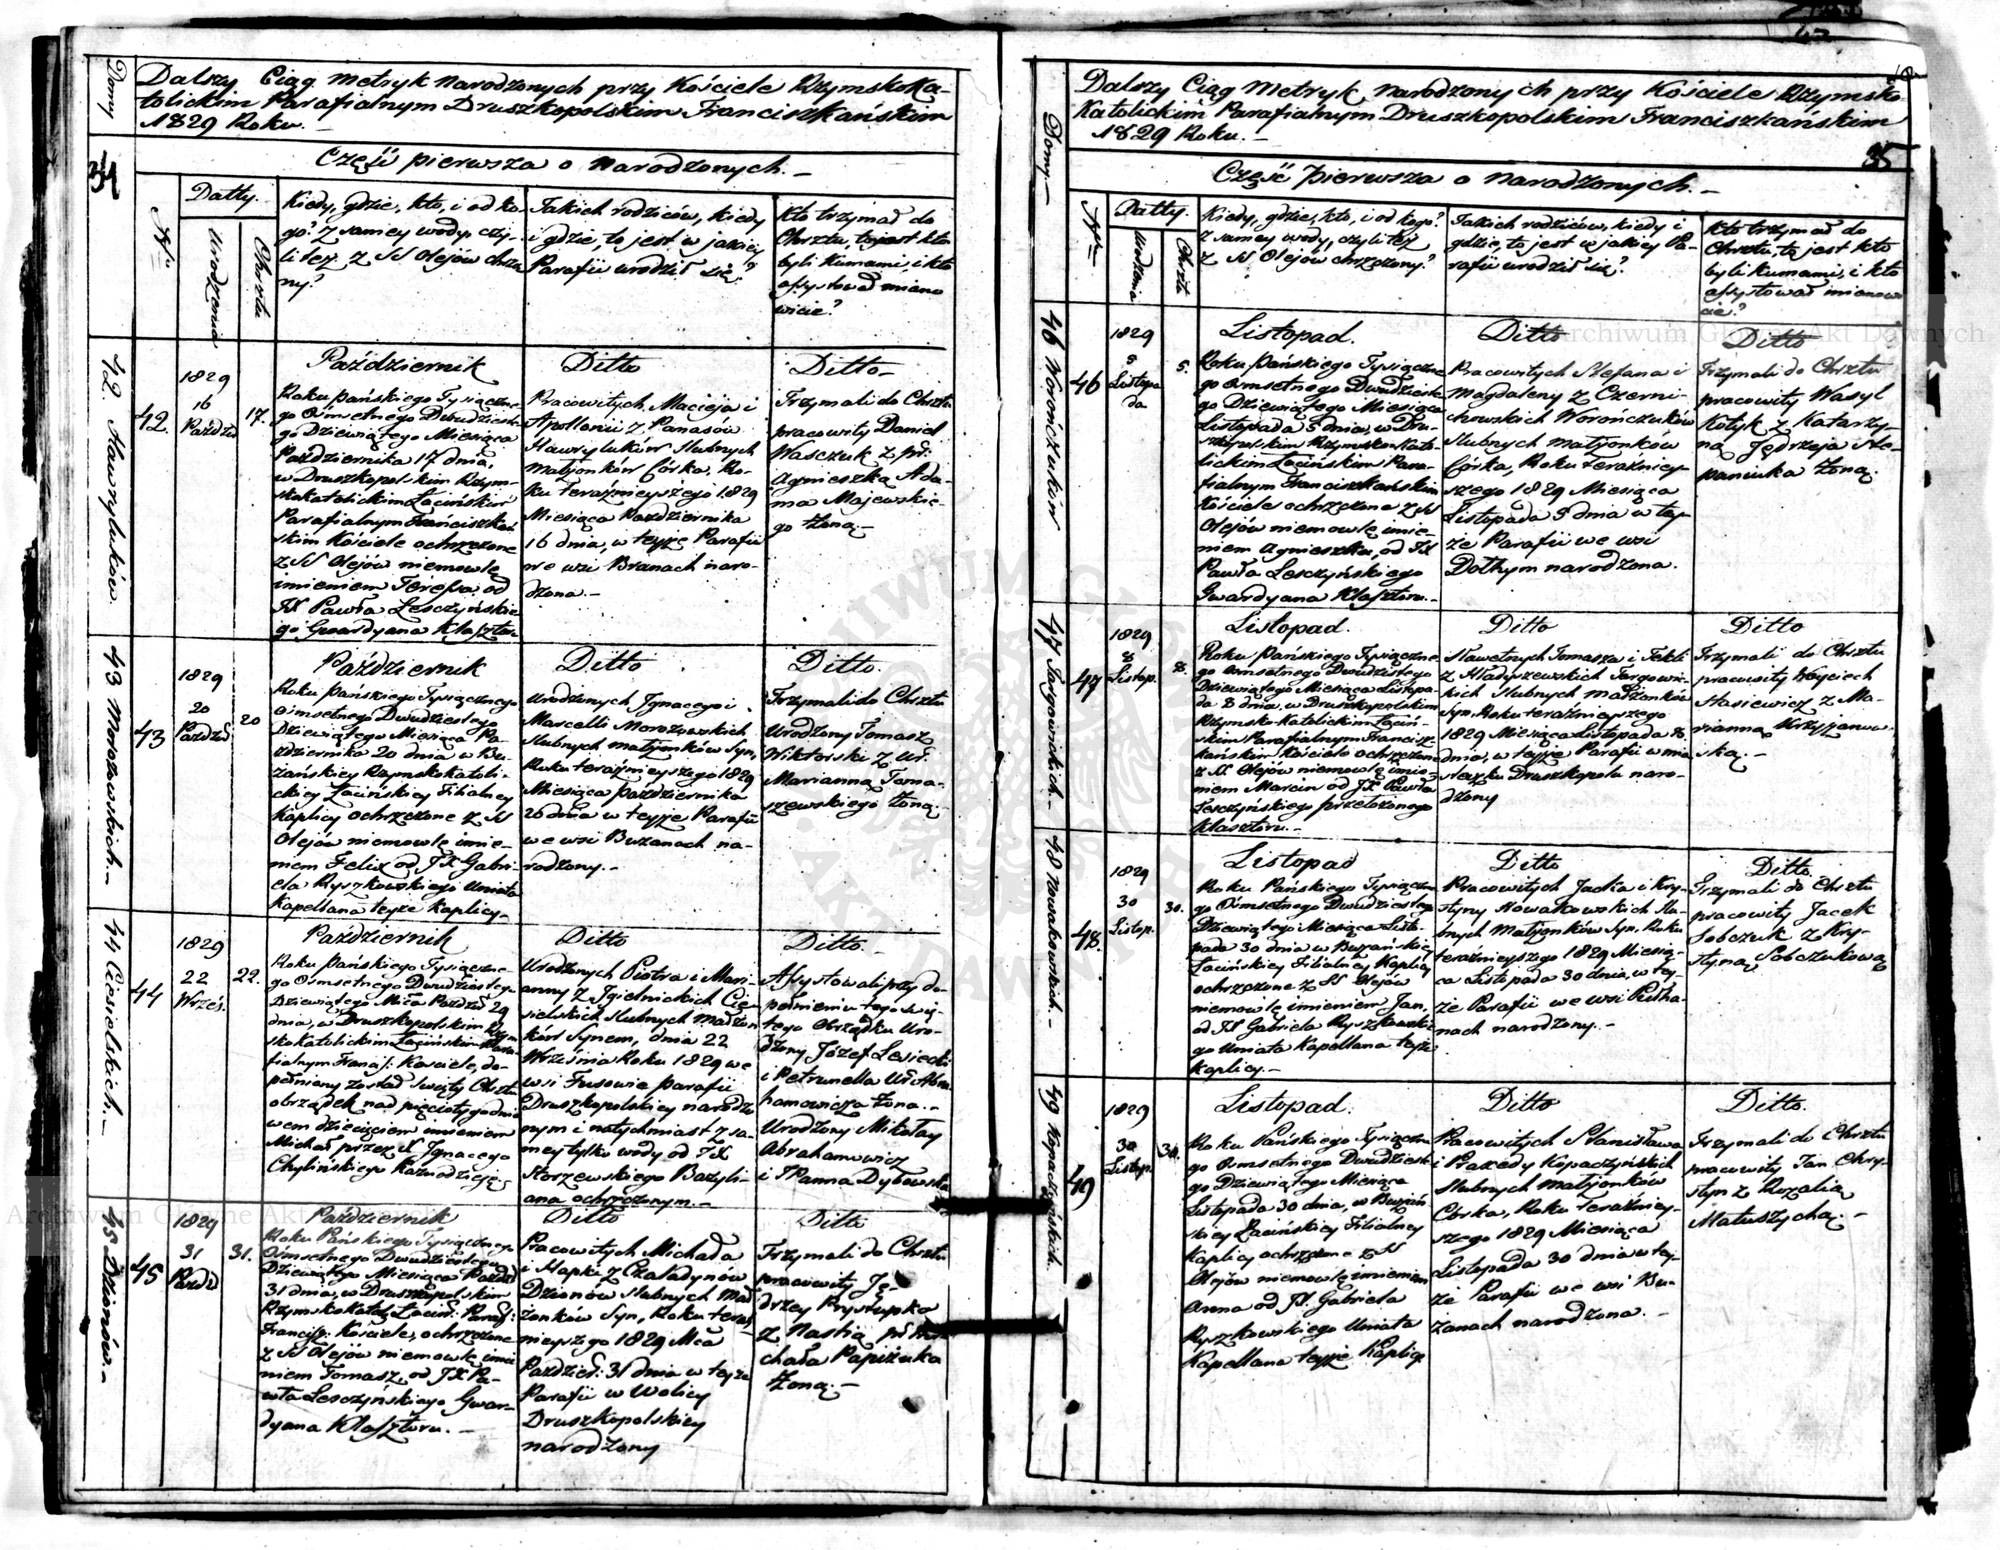 Domy
Dalszy Ciąg Metryk Narodzonych przy Kościele Rzymsko Ka-
tolickim Parafialnym Druszkopolskim Franciszkańskim
1829 Roku. —
Część pierwsza o Narodzonych. —
Nr
Datty
Urodzenia
Chrztu
Kiedy, gdzie, kto, i od ko-
go? z samey wody, czy-
li też z SS Olejów chrzco-
ny?
Jakich rodziców, kiedy
i gdzie, to jest w jakiey
Parafii urodził się?
Kto trzymał do
Chrztu, to jest kto
byli Kumami, i kto
assystował miano
wicie?
42. Hawryluków.
42.
1829
16
Paździer
17.
Październik
Roku Pańskiego Tysiączne-
go Ośmsetnego Dwudzieste-
go Dziewiątego Miesiąca
Października 17 dnia,
w Druszkopolskim Rzym-
skokatolickim Łacińskim
Parafialnym Franciszkań-
skim Kościele ochrzczone
z SS Olejów niemowlę
imieniem Teressa od
JX Pawła Leszczyńskie-
go Gwardyana Klasztor.
Ditto
Pracowitych Macieja i
Apollonii z Panasów
Hawryluków Slubnych
Małżonków Córka, Ro-
ku teraźnieyszego 1829
Miesiąca Października
16 dnia, w teyże Parafii
we wsi Branach naro-
dzona. —
Ditto —
Trzymali do Chrztu
pracowity Daniel
Wasczuk z pr:
Agnieszką Ada-
ma Majewskie-
go żoną. —
43 Morozowskich. —
43
1829
20
Paździer
20
Październik
Roku Pańskiego Tysiącznego
Ośmsetnego Dwudziestego
Dziewiątego Miesiąca Pa-
ździernika 20 dnia w Bu-
żańskiey Rzymskokatoli-
ckiey Łacińskiey Filialney
Kaplicy ochrzczone z SS
Olejów niemowlę imie-
niem Felix od JX Gabri-
ela Ryszkowskiego Uniata
Kapellana teyże Kaplicy —
Ditto
Urodzonych Jgnacego i
Marcelli Morozowskich
slubnych małżonków Syn,
Roku teraźnieyszego 1829
Miesiąca października
20 dnia w teyże Parafii
we wsi Bużanach na-
rodzony. —
Ditto.
Trzymali do Chrztu
Urodzony Tomasz
Wiktorski z Ur.
Marianną Toma-
szewskiego żoną.
44 Ciesielskich. —
44
1829
22
Wrześ.
22.
Październik
Roku Pańskiego Tysiączne-
go Ośmsetnego Dwudziestego
Dziewiątego Mca Paździer 29
dnia, w Druszkopolskim Rzym
skokatolickim Łacińskim Para-
fialnym Kościele, do-
pełniony został święty Chrztu
obrządek nad pięciotygodnio-
wem dziecięciem imieniem
Michał przez X Jgnacego
Chylińskiego Kaznodzieję.
Ditto
Urodzonych Piotra i Mari-
anny z Jgielnickich Cie-
sielskich slubnych Małżon
ków Synem, dnia 22
Września Roku 1829 we
wsi Fusowie parafii
Druszkopolskiey narodzo-
nym i natychmiast z sa-
mey tylko wody od JX
Storzewskiego Bazyli-
ana ochrzczonym. —
Ditto.
Assystowali przy do-
pełnieniu tego świę-
tego Obrządku Uro-
dzony Józef Lesiecki
i Petrunella Ur Abra
hamowicza żona. —
Urodzony Mikołay
Abrahamowicz
i Panna Dybowska
45 Dzionów. —
45
1829
31
Paździ
31.
Październik
Roku Pańskiego Tysiącznego
Ośmsetnego Dwudziestego
Dziewiątego Miesiąca Paździ
31 dnia, w Druszkopolskim
Rzymskokatol: Łaciń: Paraf:
Francisz: Kościele, ochrzczone
z SS Olejów niemowlę imie
niem Tomasz od JX Pa-
wła Leszczyńskiego Gwar-
dyana Klasztoru. —
Ditto
Pracowitych Michała
i Hapki z Czaładynów
Dzionów slubnych Mał
żonków Syn, Roku teraź-
nieyszego 1829 Mca
Paździer: 31 dnia w teyże
Parafii w Wolicy
Druszkopolskiey
narodzony
Ditto
Trzymali do Chrztu
pracowity Ję-
drzey Prystupka
z Nastią
chała Papiżuka
żoną. —
Domy —
Dalszy Ciąg Metryk Narodzonych przy Kościele Rzymsko-
Katolickim Parafialnym Druszkopolskim Franciszkańskim
1829 Roku. —
35
Część Pierwsza o Narodzonych. —
Datty.
Urodzenia
Chrztu
Kiedy, gdzie, kto, i od kogo?
z samey wody, czyli też
z SS Olejów chrzczony?
Jakich rodziców, kiedy i
gdzie, to jest w jakiey Pa-
rafii urodził się?
Kto trzymał do
Chrztu, to jest kto
byli kumami, i kto
assystował mianowi
cie?
46 Worończuków
46
1829
5
Listopa
da
5.
Listopad.
Roku Pańskiego Tysiączne
go Ośmsetnego Dwudzieste-
go Dziewiątego Miesiąca
Listopada 5 dnia, w Dru-
szkopolskim Rzymsko Kato-
lickim Łacińskim Para-
fialnym Franciszkańskim
Kościele ochrzczone z SS
Olejów niemowlę imie-
niem Agnieszka, od JX
Pawła Lesczyńskiego
Gwardyana Klasztoru. —
Ditto
Pracowitych Stefana i
Magdaleny z Czerni-
chowskich Worończuków
slubnych małżonków
Córka, Roku teraźniey-
szego 1829 Miesiąca
Listopada 5 dnia w tey-
że Parafii we wsi
Dołhym narodzona.
Ditto
Trzymali do Chrztu
pracowity Wasyl
Kotyk z Katarzy-
ną Jędrzeja Ste-
paniuka żoną.
47 Targowickich. —
47
1829
8
Listop.
8.
Listopad.
Roku Pańskiego Tysiączne-
go Ośmsetnego Dwudziestego
Dziewiątego Miesiąca Listopa-
da 8 dnia, w Druszkopolskim
Rzymsko-Katolickim Łaciń-
skim Parafialnym Francisz-
kańskim Kościele ochrzczone
z SS. Olejów niemowlę imie-
niem Marcin od JX Pawła
Lesczyńskiego przełożonego
Klasztoru. —
Ditto
Sławetnych Tomasza i Tekli
z Hładyszewskich Targowic-
kich slubnych małżonków
Syn, Roku teraźnieyszego
1829 Miesiąca Listopada 8
dnia, w teyże Parafii w mia
steczku Druszkopolu naro-
dzony
Ditto
Trzymali do Chrztu
pracowity Woyciech
Stasiewicz z Ma-
rianną Krzyżanow-
ską. —
48 Nowakowskich. —
48.
1829
30
Listop.
30.
Listopad
Roku Pańskiego Tysiączne-
go Ośmsetnego Dwudziestego
Dziewiątego Miesiąca Listo-
pada 30 dnia w Bużańskiey
Łacińskiey Filialney Kaplicy
ochrzczone z SS Olejów
niemowlę imieniem Jan,
od JX Gabriela Ryszkowskie
go Uniata Kapellana teyże
Kaplicy. —
Ditto
Pracowitych Jacka i Kry-
styny Nowakowskich Slu-
bnych Małżonków Syn, Roku
teraźnieyszego 1829 Miesią-
ca Listopada 30 dnia, w tey-
że Parafii we wsi Pułha-
nach narodzony. —
Ditto.
Trzymali do Chrztu
pracowity Jacek
Sobczuk z Kry-
styną Sobczukową
49 Kopaczyńskich.
49
1829
30
Listop.
30.
Listopad.
Roku Pańskiego Tysiączne
go Ośmsetnego Dwudzieste-
go Dziewiątego Miesiąca
Listopada 30 dnia, w Bużań
skiey Łacińskiey Filialney
Kaplicy ochrzczone z SS
Olejów niemowlę imieniem
Anna od JX. Gabriela
Ryszkowskiego Uniata
Kapellana teyże Kaplicy.
Ditto
Pracowitych Stanisława
i Praxedy Kopaczyńskich
slubnych Małżonków
Córka, Roku teraźniey-
szego 1829 Miesiąca
Listopada 30 dnia w tey-
że Parafii we wsi Bu-
żanach narodzona. —
Ditto.
Trzymali do Chrztu
pracowity Jan Chry-
styn z Ruzalią
Matuszychą. —
Archiwum Główne Akt Dawnych
Archiwum Główne Akt Dawnych
ARCHIWUM GŁÓWNE AKT DAWNYCH